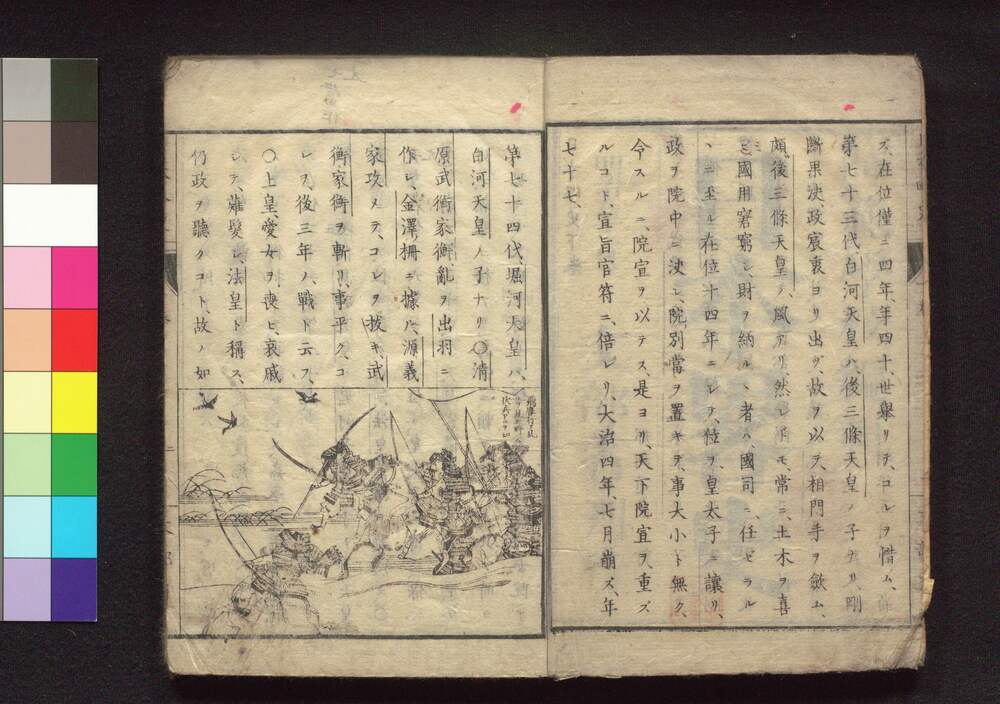 ズ、在位僅ニ四年、年四十、世舉リテ、コレヲ惜ム、
第七十三代、白河天皇ハ、後三條天皇ノ子ナリ、剛
斷果决、政宸衷ヨリ出ヅ、故ヲ以テ、相門手ヲ歛ム、
頗後三條天皇ノ、風アリ、然レ𪜈モ、常ニ、土木ヲ喜
ミ國用窘窮シ、財ヲ納ルヽ者ハ、國司ニ、任ゼラル
ヽニ至ル在位十四年ニシテ、位ヲ、皇太子ニ讓リ、
政ヲ院中ニ决シ、院別當ヲ置キテ、事大小ト無ク、
今スルニ、院宣ヲ以テス、是ヨリ、天下院宣ヲ、重ズ
ルコト、宣旨官符ニ、倍レリ、大治四年、七月崩ズ、年
七十七、
第七十四代、堀河天皇ハ、
白河天皇ノ子ナリ〇清
原武衡家衡亂ヲ出羽ニ
作シ、金澤柵ニ據ル、源義
家攻メテ、コレヲ拔キ、武
衡家衡ヲ斬リ、事平ク、コ
レヲ、後三年ノ、戰ト云フ、
〇上皇、愛女ヲ、喪ヒ、哀戚
シテ、薙髮シ、法皇ト稱ス、
仍政ヲ聽クコト、故ノ如